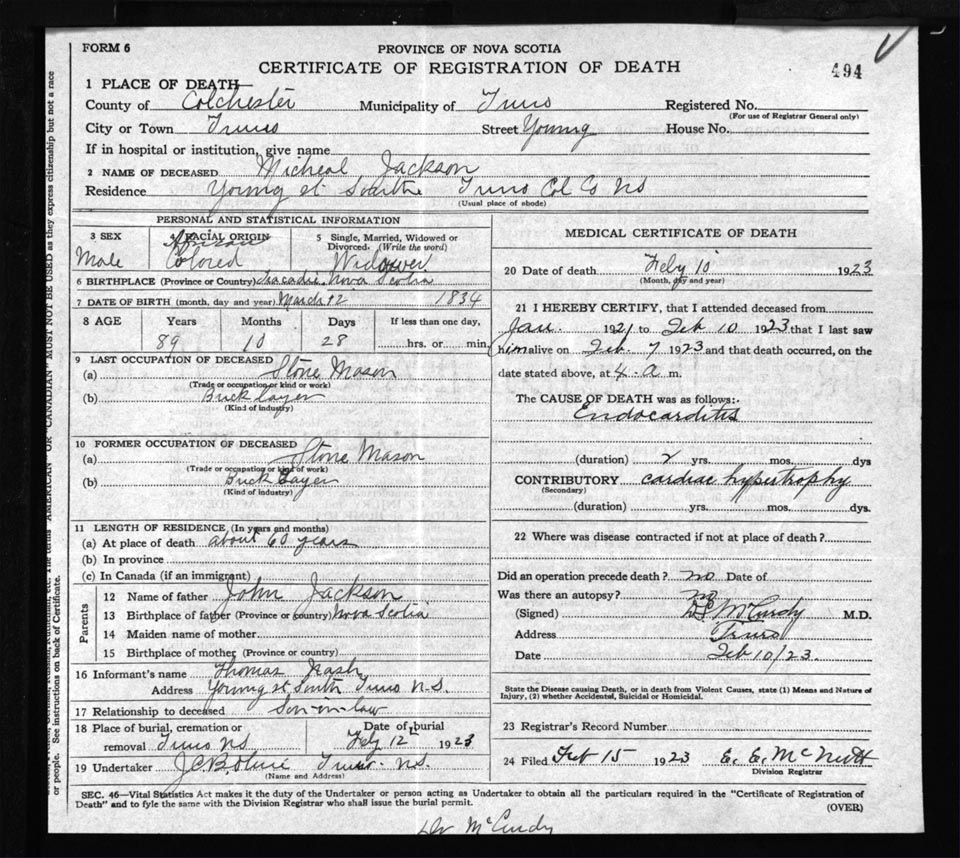 FORM 6
PROVINCE OF NOVA SCOTIA
CERTIFICATE OF REGISTRATION OF DEATH
494
1 PLACE OF DEATH
County of Colchester Municipality of Truro Registered No.
(For use of Registrar General only)
City or Town Truro Street Young House No.
If in hospital or institution, give name
2 NAME OF DECEASED Micheal Jackson
Residence Young st South Truro Col Co NS
(Usual place of abode)
PERSONAL AND STATISTICAL INFORMATION
3 SEX
Male
4 RACIAL ORIGIN
African
Colored
5 Single, Married, Widowed or Divorced. (Write the word)
Widower
6 BIRTHPLACE (Province or Country) Tracadie Nova Scotia
7 DATE OF BIRTH (month, day and year) March 12 1834
8 AGE Years Months Days If less than one day,
89 10 28 hrs. or min.
9 LAST OCCUPATION OF DECEASED
(a) Stone Mason
(Trade or occupation or kind or work)
(b) Brick layer
(Kind of industry)
10 FORMER OCCUPATION OF DECEASED
(a) Stone Mason
(Trade or occupation or kind of work)
(b) Brick Layer
(Kind of industry)
11 LENGTH OF RESIDENCE (In years and months)
(a) At place of death about 60 years
(b) In province
(c) In Canada (if an immigrant)
Parents
12 Name of father John Jackson
13 Birthplace of father (Province or country) Nova Scotia
14 Maiden name of mother
15 Birthplace of mother (Province or country)
16 Informant's name Thomas Nash
Address Young st South Truro N.S.
17 Relationship to deceased Son-in-law
18 Place of burial, cremation or removal Truro NS
Date of burial
Feby 12th 1923
19 Undertaker Truro N.S.
(Name and Address)
MEDICAL CERTIFICATE OF DEATH
20 Date of death Feby 10 1923
(Month, day and year)
21 I HEREBY CERTIFY, that I attended deceased from
Jan. 1921 to Feb 10 1923 that I last saw
him alive on Feb. 7 1923 and that death occurred, on the
date stated above, at 4. a m.
The CAUSE OF DEATH was as follows:
Endocarditis
(duration) 2 yrs. mos. dys
CONTRIBUTORY cardiac hypertrophy
(Secondary)
(duration) yrs. mos. dys.
22 Where was disease contracted if not at place of death?
Did an operation precede death? no Date of
Was there an autopsy? no
(Signed) McCurdy M.D.
Address Truro
Date Feb 10/23.
State the Disease causing Death, or in death from Violent Causes, state (1) Means and Nature of
Injury, (2) whether Accidental, Suicidal or Homicidal.
23 Registrar's Record Number
24 Filed Feb 15 1923 E. E. McNutt
Division Registrar
SEC. 46—Vital Statistics Act makes it the duty of the Undertaker or person acting as Undertaker to obtain all the particulars required in the "Certificate of Registration of
Death" and to fyle the same with the Division Registrar who shall issue the burial permit.
(OVER)
Dr McCurdy
The terms "AMERICAN" OR "CANADIAN" MUST NOT BE USED as they express citizenship but not a race
or people. See instructions on back of Certificate.